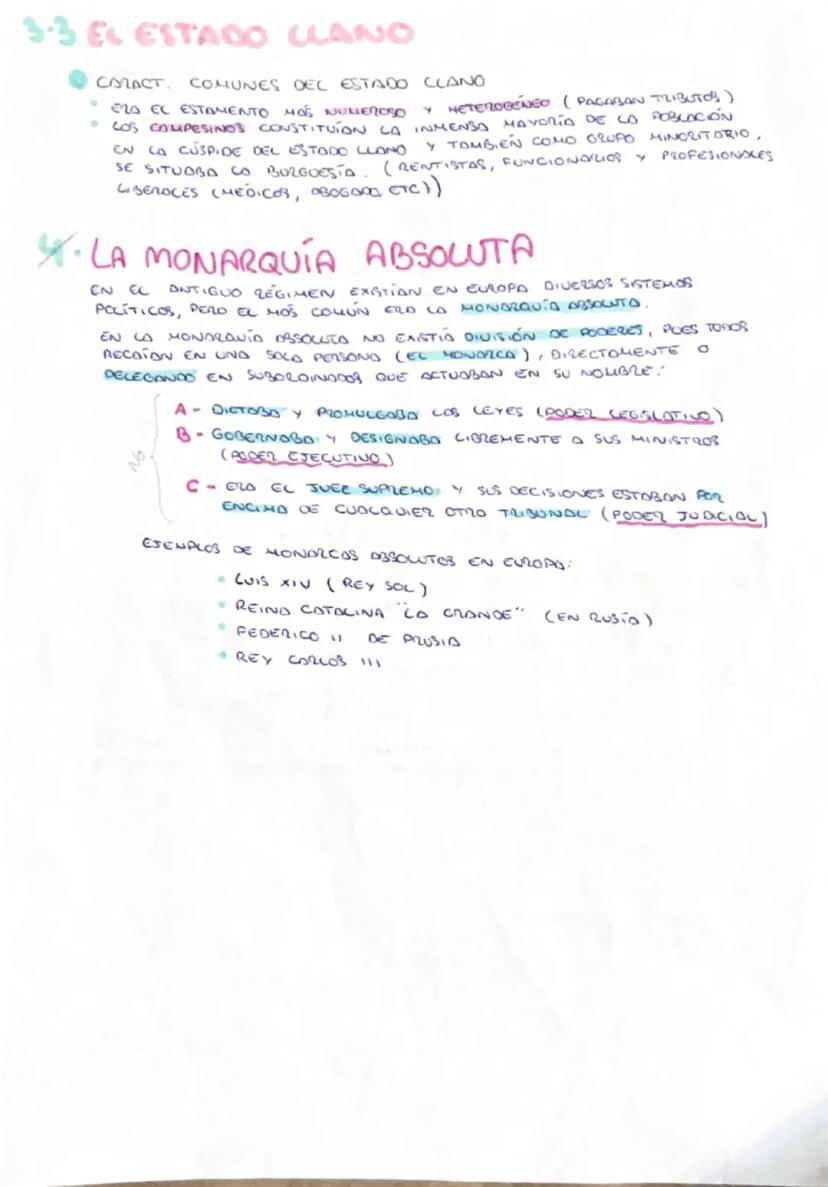 3.3 EL ESTADO LLANO
CARACT. COMUNES DEL ESTADO LLANO
ERA EL ESTAMENTO MÁS NUMEROSO Y HETEROGÉNEO (PAGABAN TRIBUTOS)
LOS CAMPESINOS CONSTITUÍAN LA INMENSA MAYORÍA DE LA POBLACIÓN
EN LA CÚSPIDE DEL ESTADO LLANO Y TAMBIÉN COMO GRUPO MINORITARIO,
SE SITUABA LA BURGUESÍA. (RENTISTAS, FUNCIONARIOS Y PROFESIONALES
LIBERALES (MÉDICOS, ABOGADO, ETC))
4. LA MONARQUÍA ABSOLUTA
EN EL ANTIGUO RÉGIMEN EXISTÍAN EN EUROPA DIVERSOS SISTEMAS
POLÍTICOS, PERO EL MÁS COMÚN ERA LA MONARQUÍA ABSOLUTA.
EN LA MONARQUÍA ABSOLUTA NO EXISTÍA DIVISIÓN DE PODERES, PUES TODOS
RECAÍAN EN UNA SOLA PERSONA (EL MONARCA), DIRECTAMENTE O
DELEGANDO EN SUBORDINADOS QUE ACTUABAN EN SU NOMBRE:
A - DICTABA Y PROMULGABA LOS LEYES (PODER LEGISLATIVO)
B - GOBERNABA Y DESIGNABA LIBREMENTE A SUS MINISTROS
(PODER EJECUTIVO)
C - ERA EL JUEZ SUPREMO Y SUS DECISIONES ESTABAN POR
ENCIMA DE CUALQUIER OTRO TRIBUNAL (PODER JUDICIAL)
EJEMPLOS DE MONARCAS ABSOLUTOS EN EUROPA:
LUIS XIV (REY SOL)
REINA CATALINA "LA GRANDE" (EN RUSIA)
FEDERICO II DE PRUSIA
REY CARLOS III